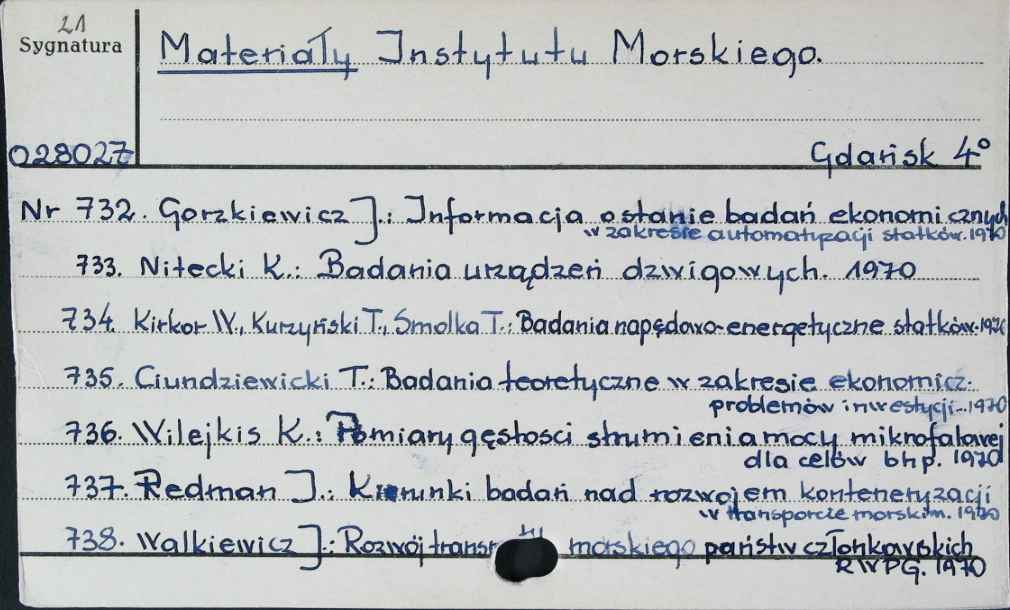 21
Sygnatura
Materiały Instytutu Morskiego.
028027
Gdańsk 4°
Nr 732. Gorzkiewicz J.: Informacja o stanie badań ekonomicznych
w zakresie automatyzacji statków. 1970
733. Nitecki K.: Badania urządzeń dzwigowych. 1970
734. Kirkor W., Kurzyński T., Smolka T.: Badania napędowo-energetyczne statków. 1970
735. Ciundziewicki T.: Badania teoretyczne w zakresie ekonomicz.
problemów inwestycji... 1970
736. Wilejkis K.: Pomiary gęstości strumienia mocy mikrofalowej
dla celów bhp. 1970
737. Redman J.: Kierunki badań nad rozwojem konteneryzacji
w transporcie morskim. 1970
738. Walkiewicz J.: Rozwój morskiego państw członkowskich
RWPG. 1970